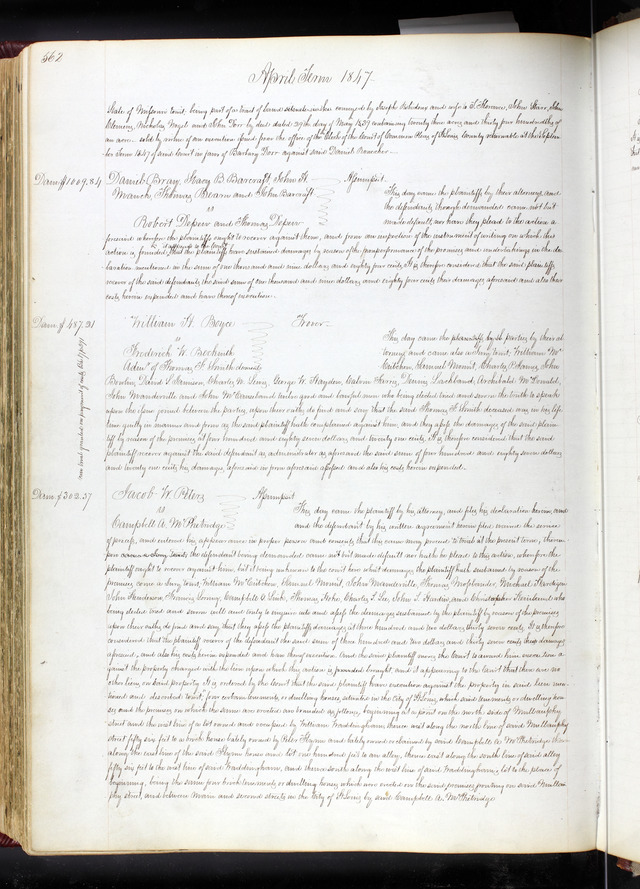 562
April Term 1847.
State of Missouri to wit, being part of a tract of land
Clemens, Nicholas and John Dorr by deed dated 29th day of May 1839 containing twenty three acres and thirty four hundredths of
an acre sold by virtue of an execution issued from the office of the Clerk of the Court of Common Pleas of St Louis County returnable at the Septem-
ber Term 1846 of said Court in favor of Dorr against said Daniel
Dam $1009.84
Daniel Stacy B. Barcroft John H.
Thomas Bearn and John Barcroft
Assumpsit
vs
Robert Depew and Thomas Depew
This day came the plaintiffs by their attorney, and
the defendants though demanded came not but
made default, nor have they plead to the action a
foresaid wherefore the plaintiffs ought to recover against them, and from an inspection of the instrument of writing on which this
action is founded, it appears to the Court that the plaintiffs have sustained damages by reason of the nonperformance of the promises and undertakings in the de-
claration mentioned in the sum of one thousand and nine dollars and eighty four cents. It is therefore considered that the said plaintiffs
recover of the said defendants the said sum of one thousand and nine dollars and eighty four cents their damages aforesaid and also their
costs herein expended and have thereof execution.
Dam $487.21
William H. Boyce
Trover
vs
Frederick W. Beckwith
Admr of Thomas F. Smith deceased
This day came the parties by their at-
torneys and came also a Jury to wit; William Mc
Cutchen, Samuel Merrit, Charles
Bowlin, David S. Charles W. George W. Haydon, Calvin Dennis Lackland, Archibald McDonald,
John Manderville and John twelve good and lawful men who being elected tried and sworn the truth to speak
upon the issue joined between the parties, upon their oaths do find and say that the said Thomas F. Smith deceased was in his life
time guilty in manner and form as the said plaintiff hath complained against him, and they assess the damages of the said plain-
tiff by reason of the premises at four hundred and eighty seven dollars and twenty one cents. It is therefore considered that the said
plaintiff recover against the said defendant as administrator as aforesaid the said sum of four hundred and eighty seven dollars
and twenty one cents his damages aforesaid in form aforesaid assessed and also his costs herein expended.
new trial granted on payment of costs
Dam $302.37
Jacob W. Peters
Assumpsit
vs
Campbell A. McPhetridge
This day came the plaintiff by his attorney, and files his declaration herein, and
and the defendant by his written agreement herein filed waived the service
of process, and entered his appearance in proper person and consents that his cause may proceed to trial at the present term, there-
the defendant being demanded came not but made default nor hath he plead to this action, wherefore the
plaintiff ought to recover against him, but it being unknown to the court here what damages the plaintiff hath sustained by reason of the
premises came a Jury to wit; William McCutchen, Samuel Merrit, John Manderville, Thomas Michael
John Henderson, Francis Campbell & Thomas Charles T. Lee, John S. Hardin and Christopher
being elected tried and sworn well and truly to enquire into and assess the damages sustained by the plaintiff by reason of the premises
upon their oaths do find and say that they assess the plaintiffs damages at three hundred and two dollars thirty seven cents. It is therefore
considered that the plaintiff recover of the defendant the said sum of three hundred and two dollars and thirty seven cents his damages
aforesaid, and also his costs herein expended and have thereof execution. And the said plaintiff moves the Court to award him execution a-
gainst the property charged with the lien upon which this action is founded brought, and it appearing to the Court that there are no
other liens on said property. It is ordered by the Court that the said plaintiff have execution against the property in said lien men-
tioned and described to wit, four certain tenements, or dwelling houses, situated in the City of St Louis, which said tenements or dwelling hou-
ses and the premises on which the same are erected are bounded as follows, beginning at a point on the north side of Mullanphy
street and the west line of a lot owned and occupied by William Waddingham, thence west along the north line of said Mullanphy
street fifty six feet to a brick house lately owned by Peter Flynn and lately owned or claimed by said Campbell A. McPhetridge thence
along the west line of the said Flynn house and lot one hundred feet to an alley, thence east along the south line of said alley
fifty six feet to the west line of Waddingham, and thence south along the west line of said Waddingham's lot to the place of
beginning, being the same four brick tenements or dwelling houses which were erected on the said premises fronting on said Mullan-
phy street, and between Main and second streets in the City of St Louis by said Campbell A. McPhetridge